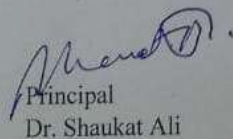 Principal
Dr. Shaukat Ali